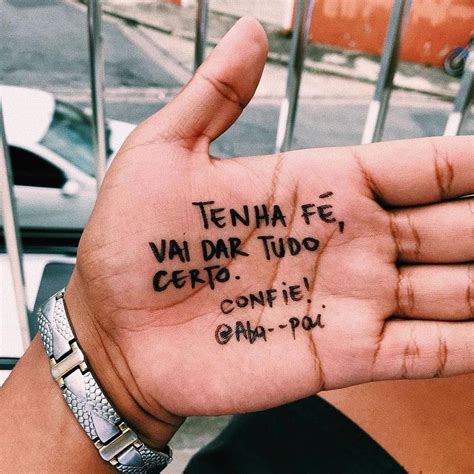 TENHA FÉ,
VAI DAR TUDO
CERTO.
CONFIE!
@Aba--pai